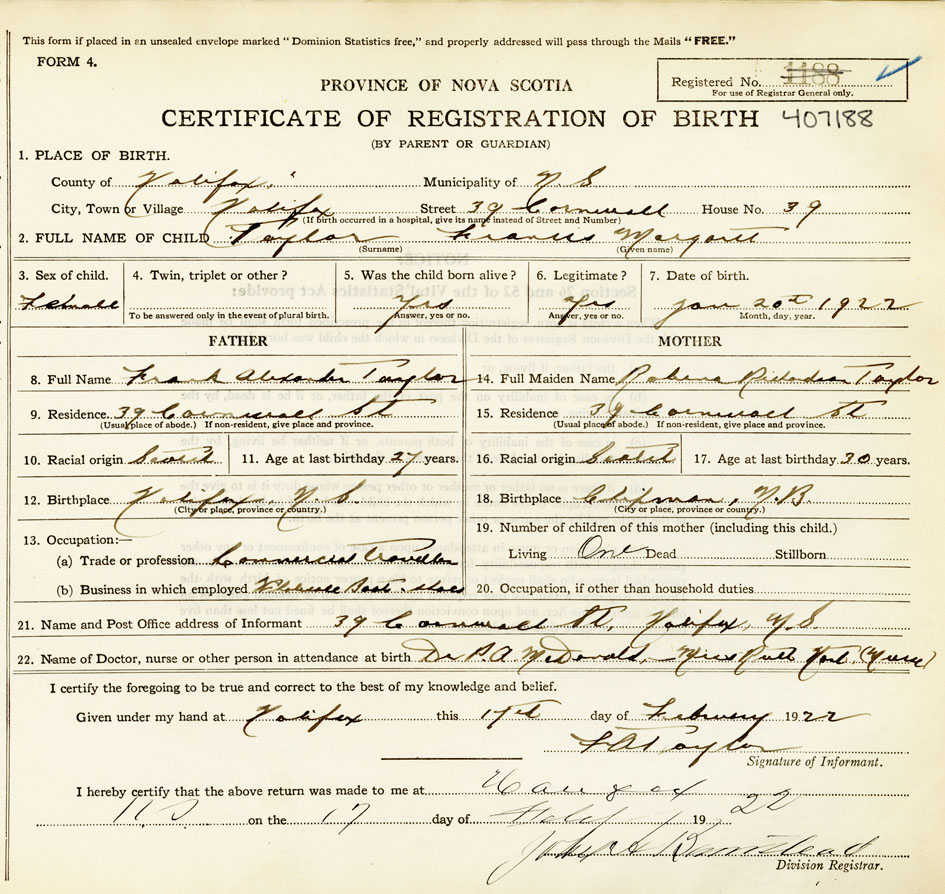 This form if placed in an unsealed envelope marked "Dominion Statistics free," and properly addressed will pass through the Mails "FREE."
FORM 4.
Registered No. 1188
For use of Registrar General only.
PROVINCE OF NOVA SCOTIA
CERTIFICATE OF REGISTRATION OF BIRTH 407188
(BY PARENT OR GUARDIAN)
1. PLACE OF BIRTH.
County of Halifax Municipality of N S
City, Town or Village Halifax Street 39 Cornwall House No. 39
(If birth occurred in a hospital, give its name instead of Street and Number)
2. FULL NAME OF CHILD Taylor Francis Margaret
(Surname) (Given name)
3. Sex of child. 4. Twin, triplet or other? 5. Was the child born alive? 6. Legitimate? 7. Date of birth.
Female Yes Yes Jan 20th 1922
To be answered only in the event of plural birth. Answer, yes or no. Answer, yes or no. Month, day, year.
FATHER MOTHER
8. Full Name Frank Alexander Taylor 14. Full Maiden Name Taylor
9. Residence. 39 Cornwall St 15. Residence 39 Cornwall St
(Usual place of abode.) If non-resident, give place and province. (Usual place of abode.) If non-resident, give place and province.
10. Racial origin 11. Age at last birthday 27 years. 16. Racial origin 17. Age at last birthday 30 years.
12. Birthplace Halifax, N.S. 18. Birthplace Chipman, N.B.
(City or place, province or country.) (City or place, province or country.)
13. Occupation:— 19. Number of children of this mother (including this child.)
(a) Trade or profession Commercial Traveller Living One Dead Stillborn
(b) Business in which employed Wholesale Boot & Shoes 20. Occupation, if other than household duties
21. Name and Post Office address of Informant 39 Cornwall St, Halifax, N.S.
22. Name of Doctor, nurse or other person in attendance at birth Dr P.A. McDonald, Miss Ruth (Nurse)
I certify the foregoing to be true and correct to the best of my knowledge and belief.
Given under my hand at Halifax this 17th day of February 1922
F A Taylor
Signature of Informant.
I hereby certify that the above return was made to me at Halifax
N.S. on the 17 day of Feby 1922
John A
Division Registrar.